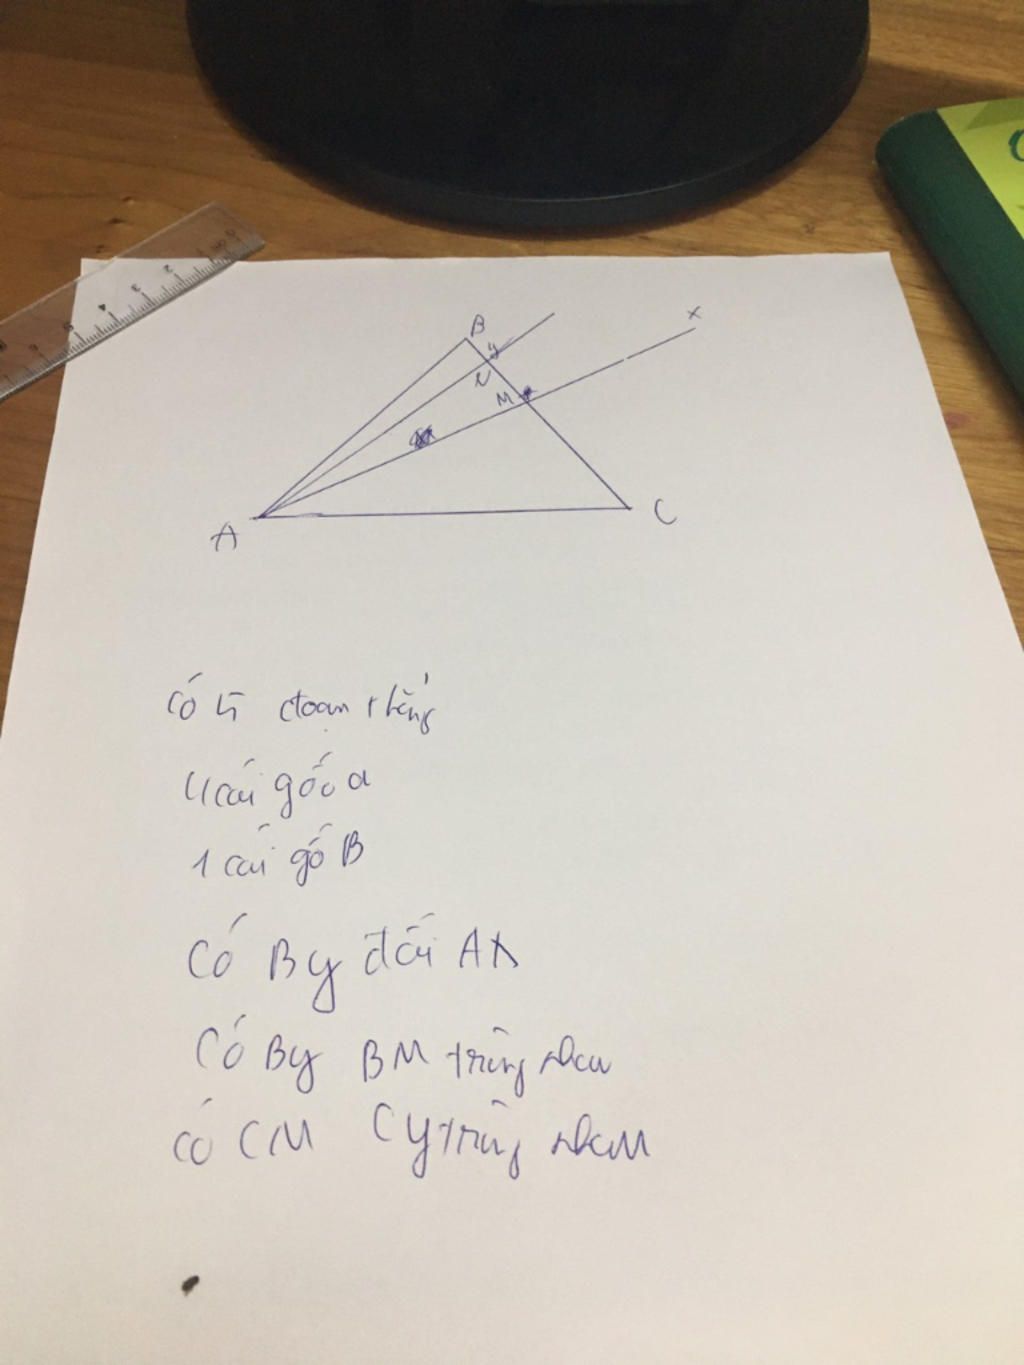 B
x
y
N
M
A
C
Có 5 đoạn thẳng
4 cái gốc a
1 cái gố B
Có By đối Ax
Có By BM trùng nhau
có CM Cy trùng nhau
0 1 2 3 4 5 6